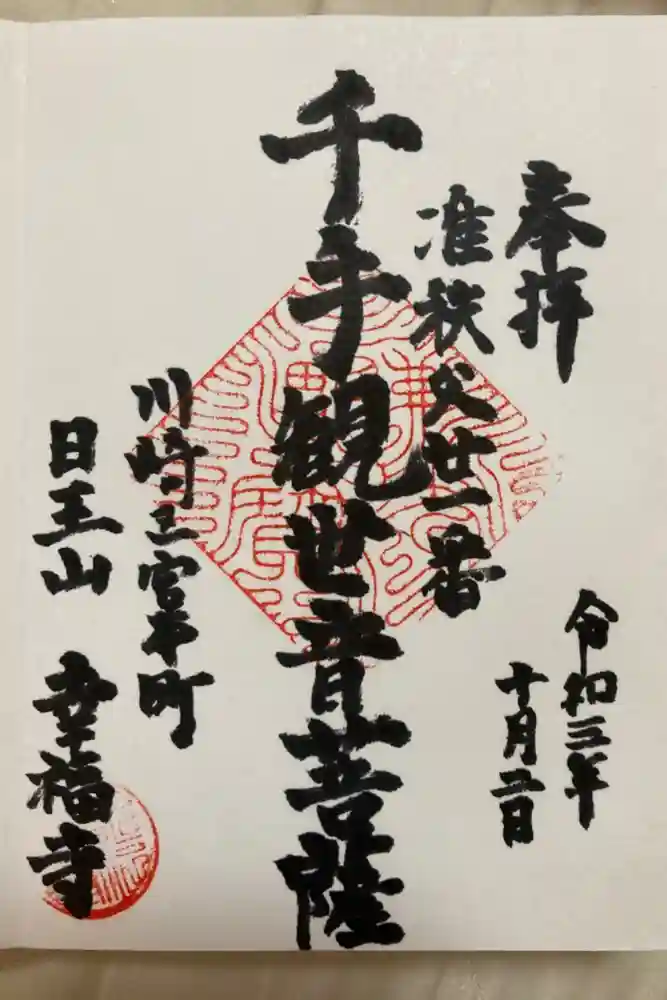 奉拝
令和三年
十月五日
准秩父廿一番
千手観世音菩薩
川崎宮本町
日王山 幸福寺